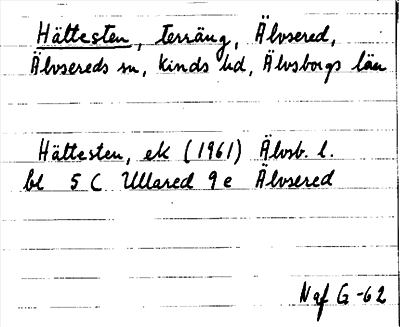 Hättesten, terräng, Älvsered,
Älvsereds sn, Kinds hd, Älvsborgs län
Hättesten, ek (1961) Älvsb. l.
bl 5 C Ullared 9 e Älvsered
Naf G-62